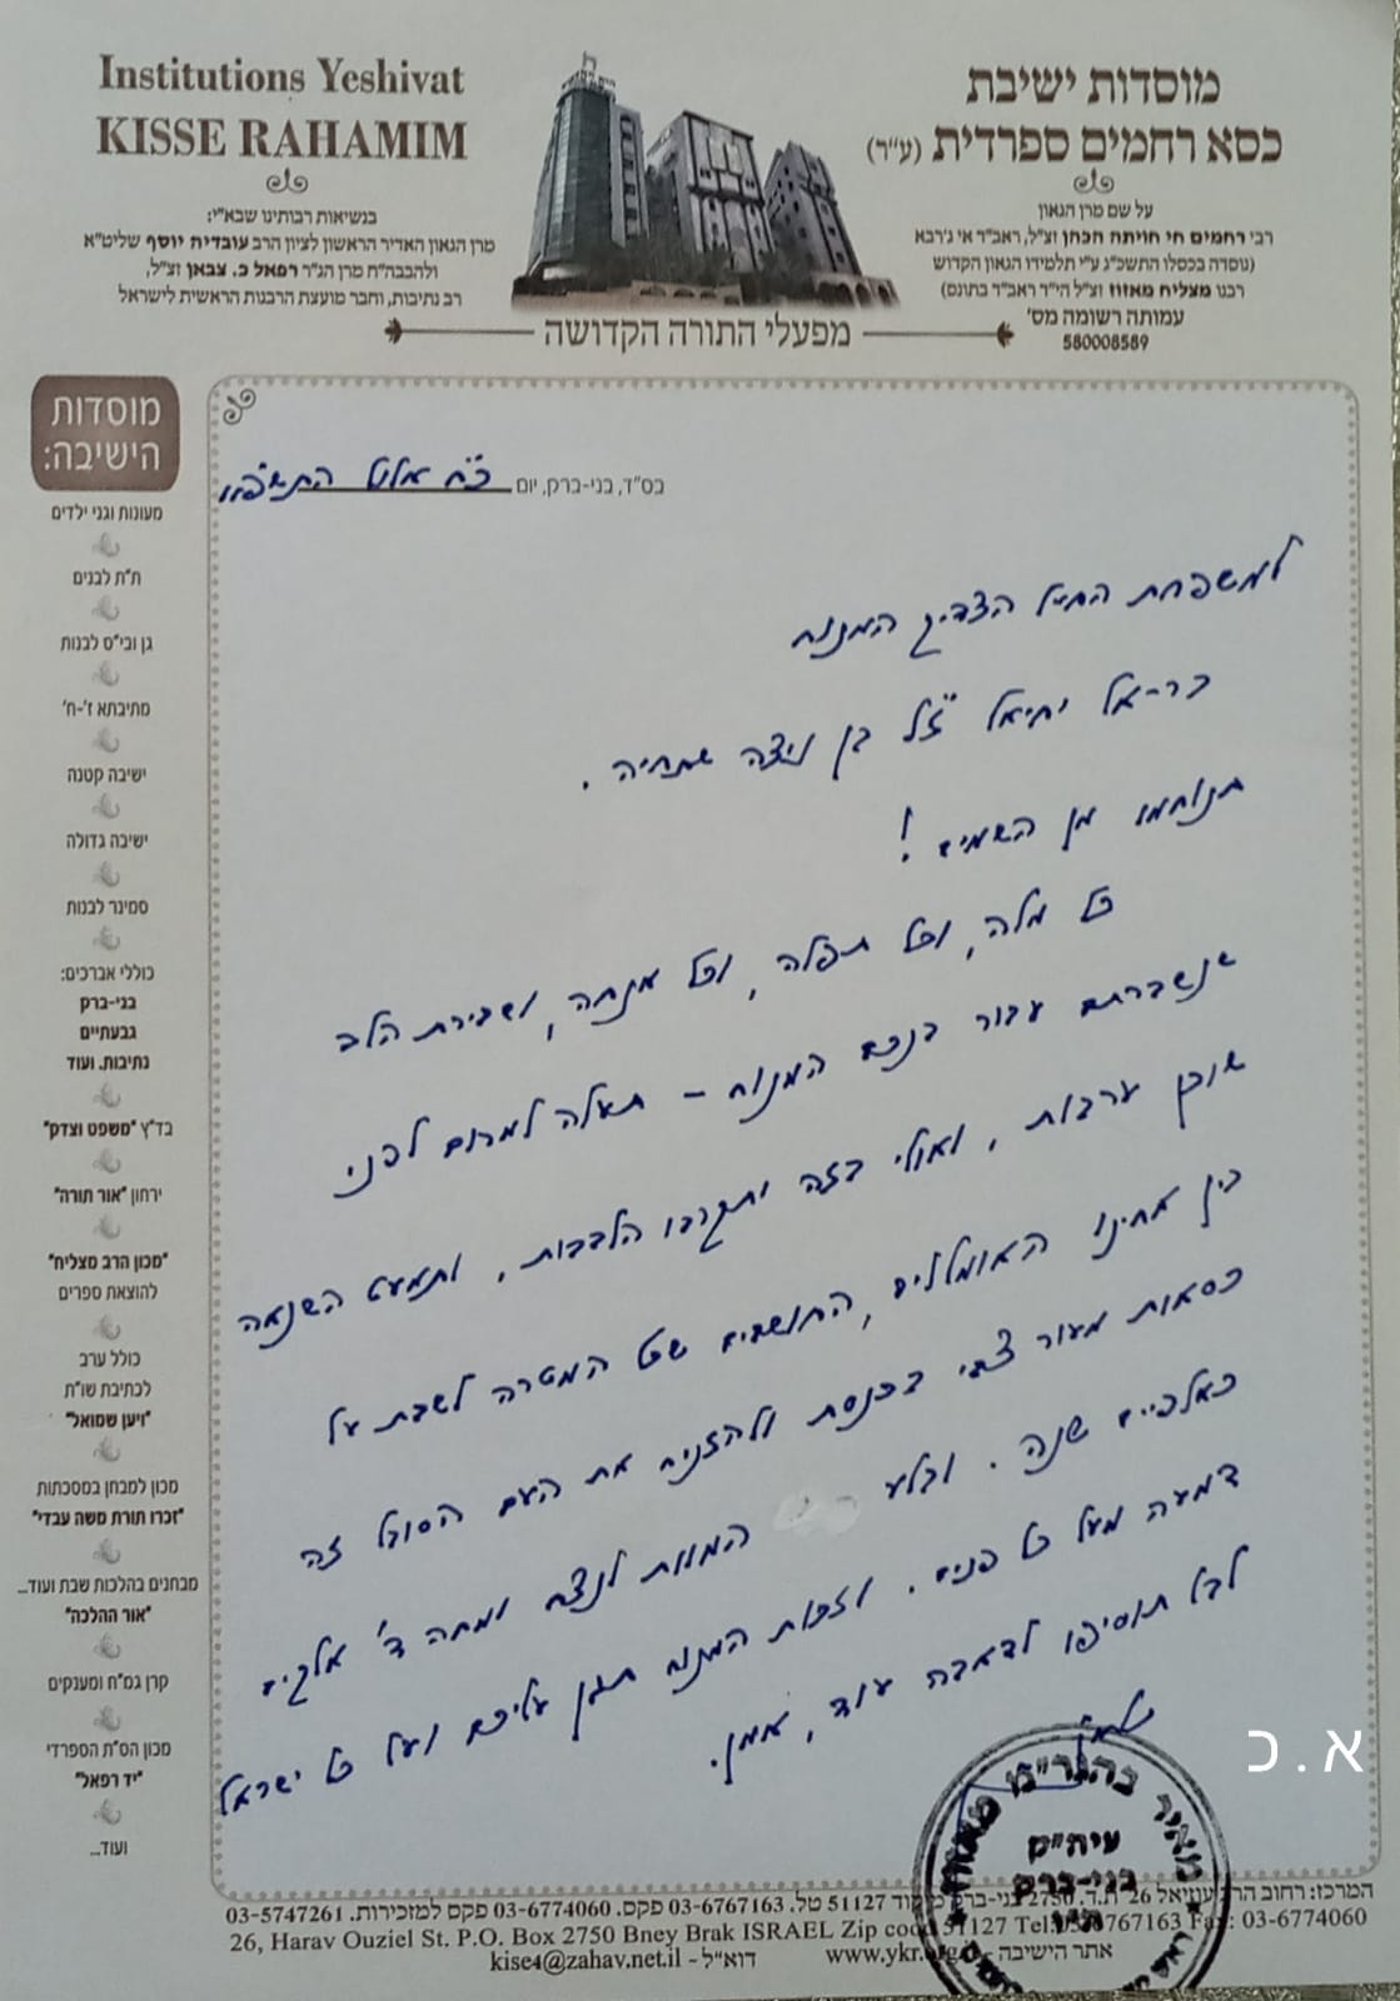 Institutions Yeshivat
KISSE RAHAMIM
בנשיאות רבותינו שבא"י:
מרן הגאון האדיר הראשון לציון הרב עובדיה יוסף שליט"א
ולהבבה"ח מרן הג"ר רפאל כ. צבאן זצ"ל,
רב נתיבות, וחבר מועצת הרבנות הראשית לישראל
מוסדות ישיבת
כסא רחמים ספרדית (ע"ר)
על שם מרן הגאון
רבי רחמים חי חויתה הכהן זצ"ל, ראב"ד אי ג'רבא
(נוסדה בכסלו התשכ"ג ע"י תלמידו הגאון הקדוש
רבנו מצליח מאזוז זצ"ל הי"ד ראב"ד בתונס)
עמותה רשומה מס'
580008589
מפעלי התורה הקדושה
מוסדות
הישיבה:
מעונות וגני ילדים
ת"ת לבנים
גן ובי"ס לבנות
מתיבתא ז'-ח'
ישיבה קטנה
ישיבה גדולה
סמינר לבנות
כוללי אברכים:
בני-ברק
גבעתיים
נתיבות. ועוד
בד"ץ "משפט וצדק"
ירחון "אור תורה"
"מכון הרב מצליח"
להוצאת ספרים
כולל ערב
לכתיבת שו"ת
"ויען שמואל"
מכון למבחן במסכתות
"זכרו תורת משה עבדי"
מבחנים בהלכות שבת ועוד...
"אור ההלכה"
קרן גמ"ח ומענקים
מכון הס"ת הספרדי
"יד רפאל"
ועוד...
בס"ד, בני-ברק, יום כ"ח אלול התשפ"א
למשפחת החייל הצדיק המנוח
בר-אל יחיאל ז"ל בן ניצה שתחיה.
תנוחמו מן השמים!
כל מלה, וכל תפלה, וכל אנחה, ושבירת הלב
שנשברתם עבור בנכם המנוח - תעלה למרום לפני
שוכן ערבות, ואולי בזה יתקרבו הלבבות, ותמעט השנאה
בין אחינו האומללים, החושבים שכל המטרה לשבת על
כסאות מעור צבי בכנסת ולהזניח את העם הסובל זה
כאלפיים שנה. ובלע המוות לנצח ומחה ד' אלקים
דמעה מעל כל פנים. וזכות המנוח תגן עליכם ועל כל ישראל
לבל תוסיפו לדאבה עוד, אמן.
מאיר
עיה"ק
בני-ברק
א.כ
המרכז: רחוב הרב עוזיאל 26 ת.ד. 2750 בני-ברק מיקוד 51127 טל. 03-6767163 פקס. 03-6774060 פקס למזכירות. 03-5747261
26, Harav Ouziel St. P.O. Box 2750 Bney Brak ISRAEL Zip cood 51127 Tel: 036767163 Fax: 03-6774060
אתר הישיבה - www.ykr. דוא"ל - kise4@zahav.net.il